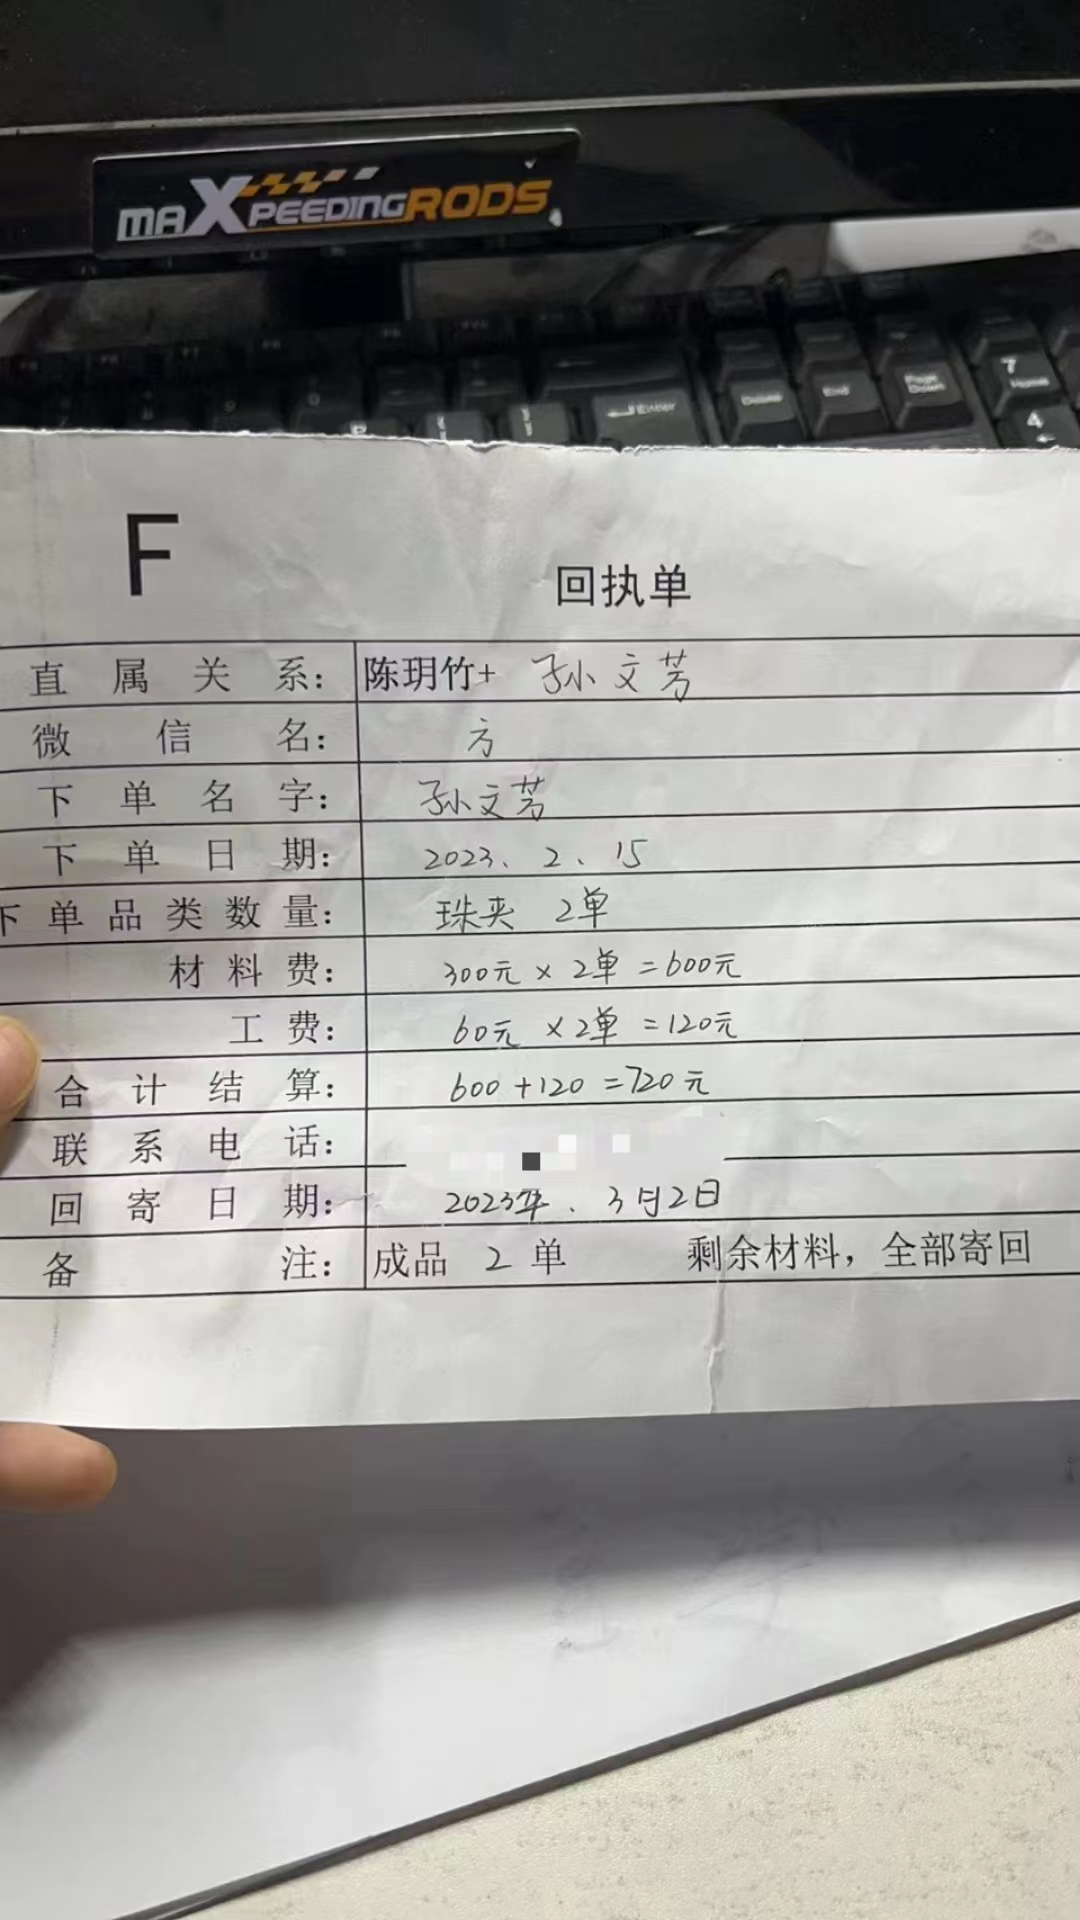 MAXPEEDINGRODS
Enter
Delete
End
Page Down
7 Home
4
F
回执单
直属关系: 陈玥竹+ 孙文芳
微信名: 方
下单名字: 孙文芳
下单日期: 2023、2、15
下单品类数量: 珠夹 2单
材料费: 300元×2单=600元
工费: 60元×2单=120元
合计结算: 600+120=720元
联系电话:
回寄日期: 2023年、3月2日
备注: 成品 2 单 剩余材料，全部寄回